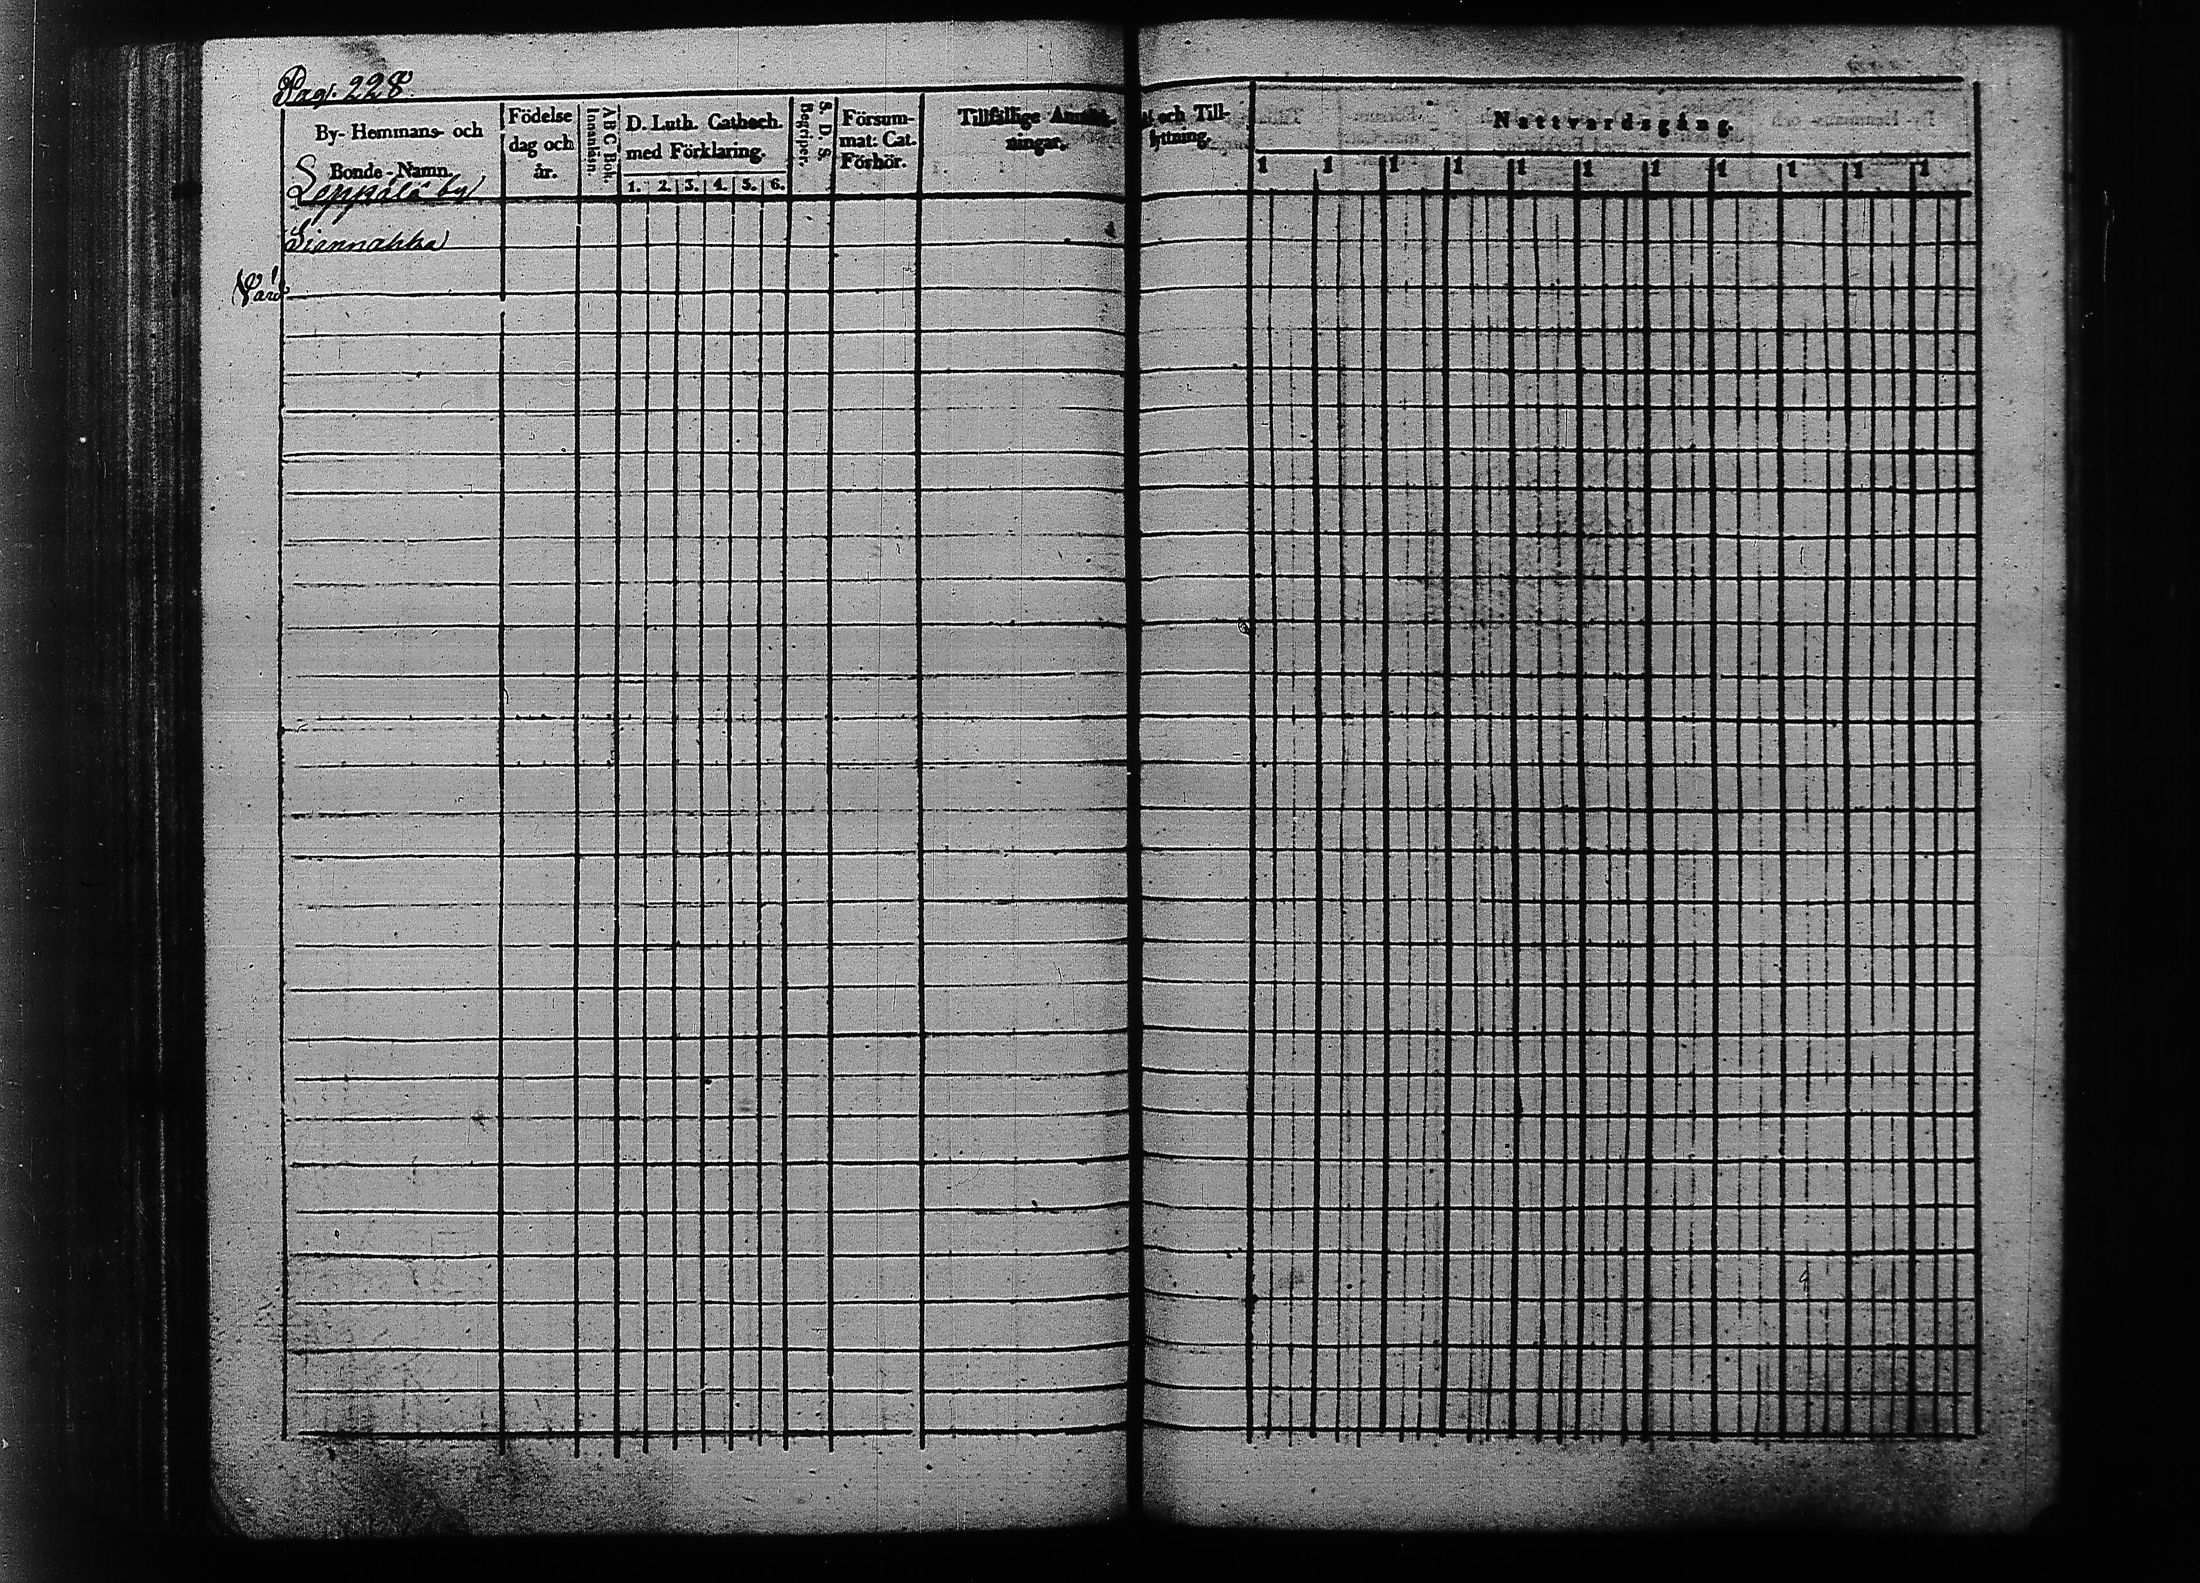 Pag. 228.
By- Hemmans- och
Bonde-Namn.
Födelse
dag och
år.
A B C Bok.
Innanläsn.
D. Luth. Cathech.
med Förklaring.
1. 2. 3. 4. 5. 6.
S. D. S.
Begriper.
Försum-
mat: Cat.
Förhör.
Tillfällige
ningar,
och Till-
flyttning.
Nattvardsgång.
1 1 1 1 1 1 1 1 1 1 1
Leppälä by
Siannahka